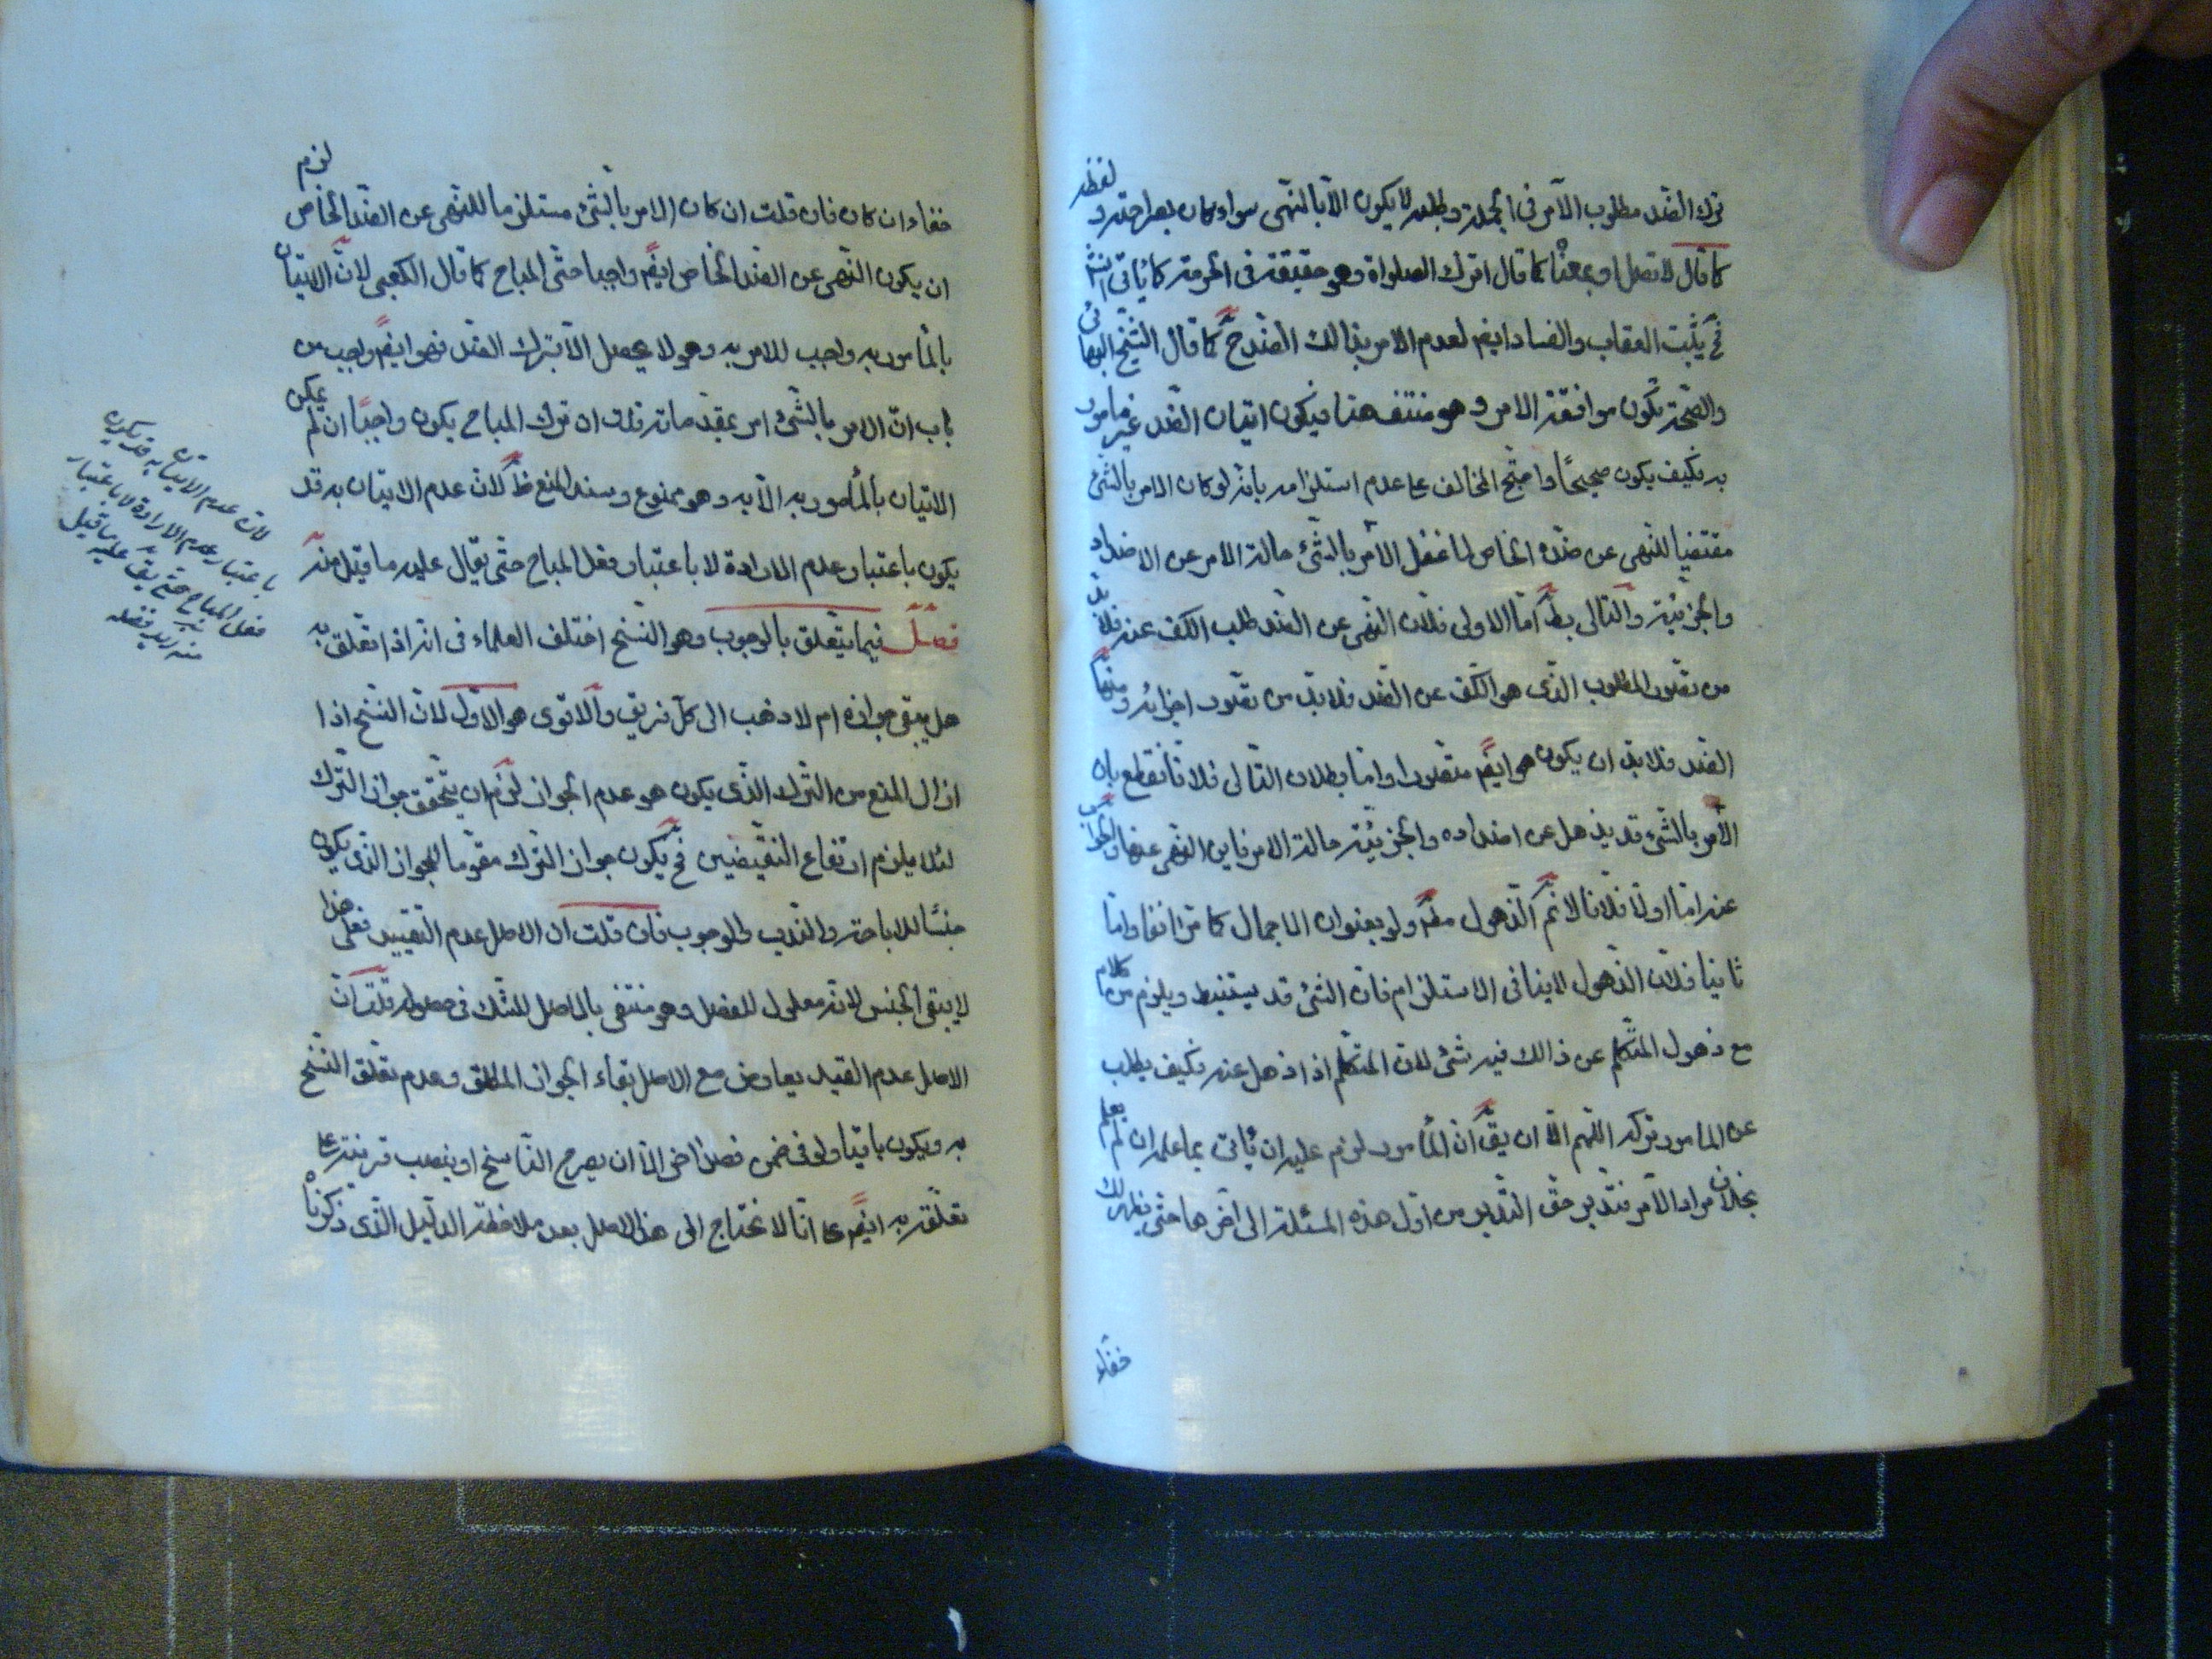 ترك الضد مطلوب الآمر فى الجملة وطلبه لا يكون الّا بالنّهى سواء كان بصراحته و لفظه
كما قال لا تصل او بمعناه كما قال اترك الصلواة وهو حقيقة فى الحرمة كما يأتى انش
فح يثبت العقاب والفساد ايضا لعدم الامر بذالك الضد ح كما قال الشيخ البهائى
والصّحة يكون موافقة الامر و هو منتف هنا فيكون اتيان الضّد غير مامور
به فكيف يكون صحيحًا واحتج المخالف على عدم استلزامه بانّه لو كان الامر بالشئ
مقتضيا للنهى عن ضدّه الخاص لما غفل الآمر بالشّئ حالة الامر عن الاضداد
والجزئيّة والتّالى بط امّا الاولى فلانّ النّهى عن الضّد طلب الكف عنه فلا بدّ
من تصوّر المطلوب الذّى هو الكفّ عن الضد فلا بدّ من تصوّر اجزائه ومنها
الضّد فلا بدّ ان يكون هو ايضًا متصوّرا وامّا بطلان التالى فلانّا نقطع بان
الآمر بالشّئ قد يذهل عن اضداده والجزئيّة حالة الامر فاين النّهى عنها والجواب
عنه امّا اوّلا فلانا لا نم الذّهول مط ولو بعنوان الاجمال كما مرّ انفا وامّا
ثانيا فلانّ الذّهول لا ينافى الاستلزام فانّ الشّئ قد يستنبط ويلزم من كلام
مع ذهول المتكلّم عن ذالك فيه شئ لانّ المتكلّم اذا ذهل عنه فكيف يطلب
عن المامور تركه اللّهم الّا ان يقّ انّ المأمور لزم عليه ان يأتى بما علم ان لم يعلم
بخلاف مراد الآمر فتدبّر حقّ التّدبّر من اوّل هذه المسئلة الى آخرها حتّى يظهر لك
خفاء
خفاء وان كان فان قلت ان كان الامر بالشّئ مستلزما للنّهى عن الضّد الخاص لزم
ان يكون النّهى عن الضّد الخاص ايضًا واجبا حتّى المباح كما قال الكعبى لانّ الاتيان
بالمأمور به واجب للامر به وهو لا يحصل الّا بترك الضّد فهو ايضًا واجب من
باب انّ الامر بالشّئ امر بمقدّماته قلت ان ترك المباح يكون واجبًا ان لم يمكن
الاتيان بالمأمور به الّا به وهو ممنوع وسند المنع ظ لانّ عدم الاتيان به قد
يكون باعتبار عدم الارادة لا باعتبار فعل المباح حتّى يقال عليه ما قيل منه
فصل فيما يتعلق بالوجوب وهو النّسخ اختلف العلماء فى انّه اذا تعلّق به
هل يبقى جوازه ام لا ذهب الى كلّ فريق والاقوى هو الاوّل لانّ النّسخ اذا
ازال المنع من التّرك الذّى يكون هو عدم الجواز لزم ان يتحقّق جواز التّرك
لئلا يلزم ارتفاع النّقيضين فح يكون جواز التّرك مقوّما للجواز الذّى يكون
جنسًا للاباحة والنّدب والوجوب فان قلت ان الاصل عدم التّقييد فعلى هذا
لا يبقى الجنس لانّه معلول للفصل وهو منتفى بالاصل للشّك فى حصوله قلت انّ
الاصل عدم القيد يعارض مع الاصل بقاء الجواز المطلق وعدم تعلّق النّسخ
به ويكون باقيا ولو فى ضمن فصل اخر الّا ان يصرح النّاسخ او ينصب قرينة على
تعلّقه به ايضًا على انّا لا نحتاج الى هذا الاصل بعد ملاحظة الدّليل الذّى ذكرناه
لانّ عدم الاتيان به قد يكون
باعتبار عدم الارادة لا باعتبار
فعل المباح حتّى يقّ عليه ما قيل